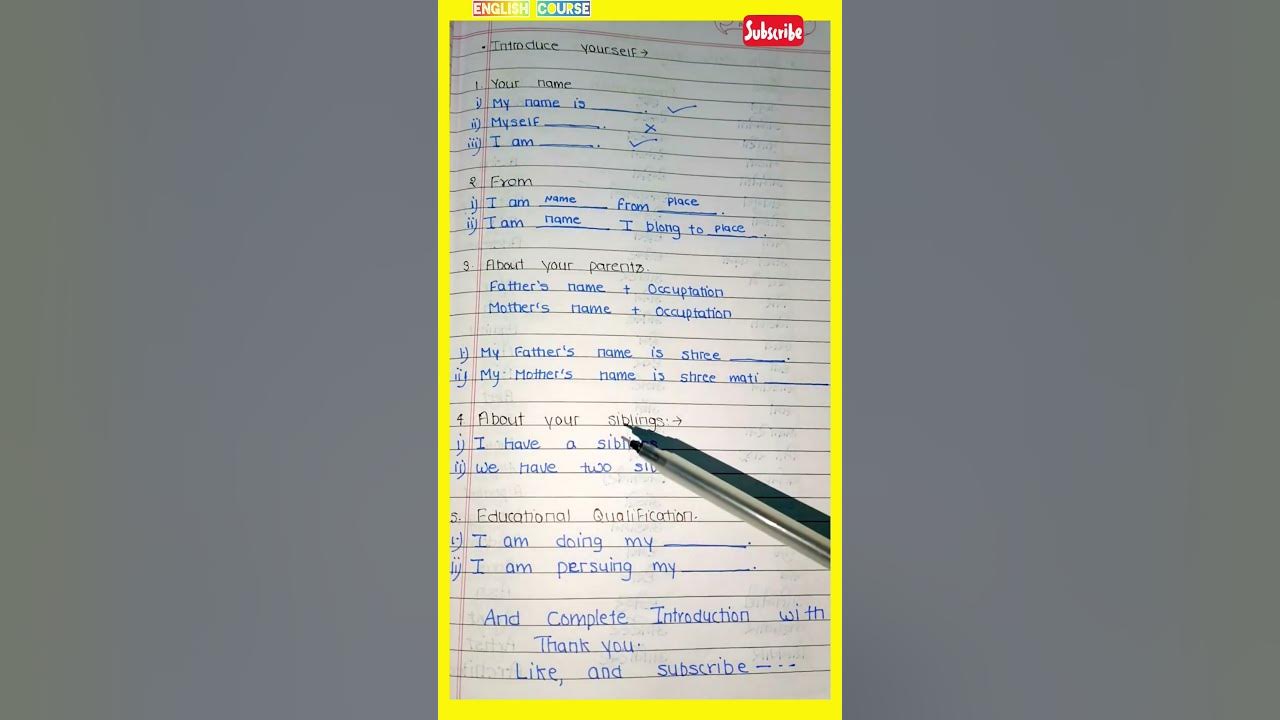 ENGLISH COURSE
Subscribe
• Introduce yourself →
1. Your name
i) My name is ______. ✓
ii) Myself ______. ×
iii) I am ______. ✓
2. From
i) I am Name from Place.
ii) I am name I blong to place.
3. About your parents.
Father's name + Occuptation
Mother's name + Occuptation
i) My Father's name is shree ______.
ii) My Mother's name is shree mati ______
4. About your siblings :→
i) I have a
ii) we have two
5. Educational Qualification.
i) I am doing my ______.
ii) I am persuing my ______.
And Complete Introduction with
Thank you.
Like, and subscribe ----